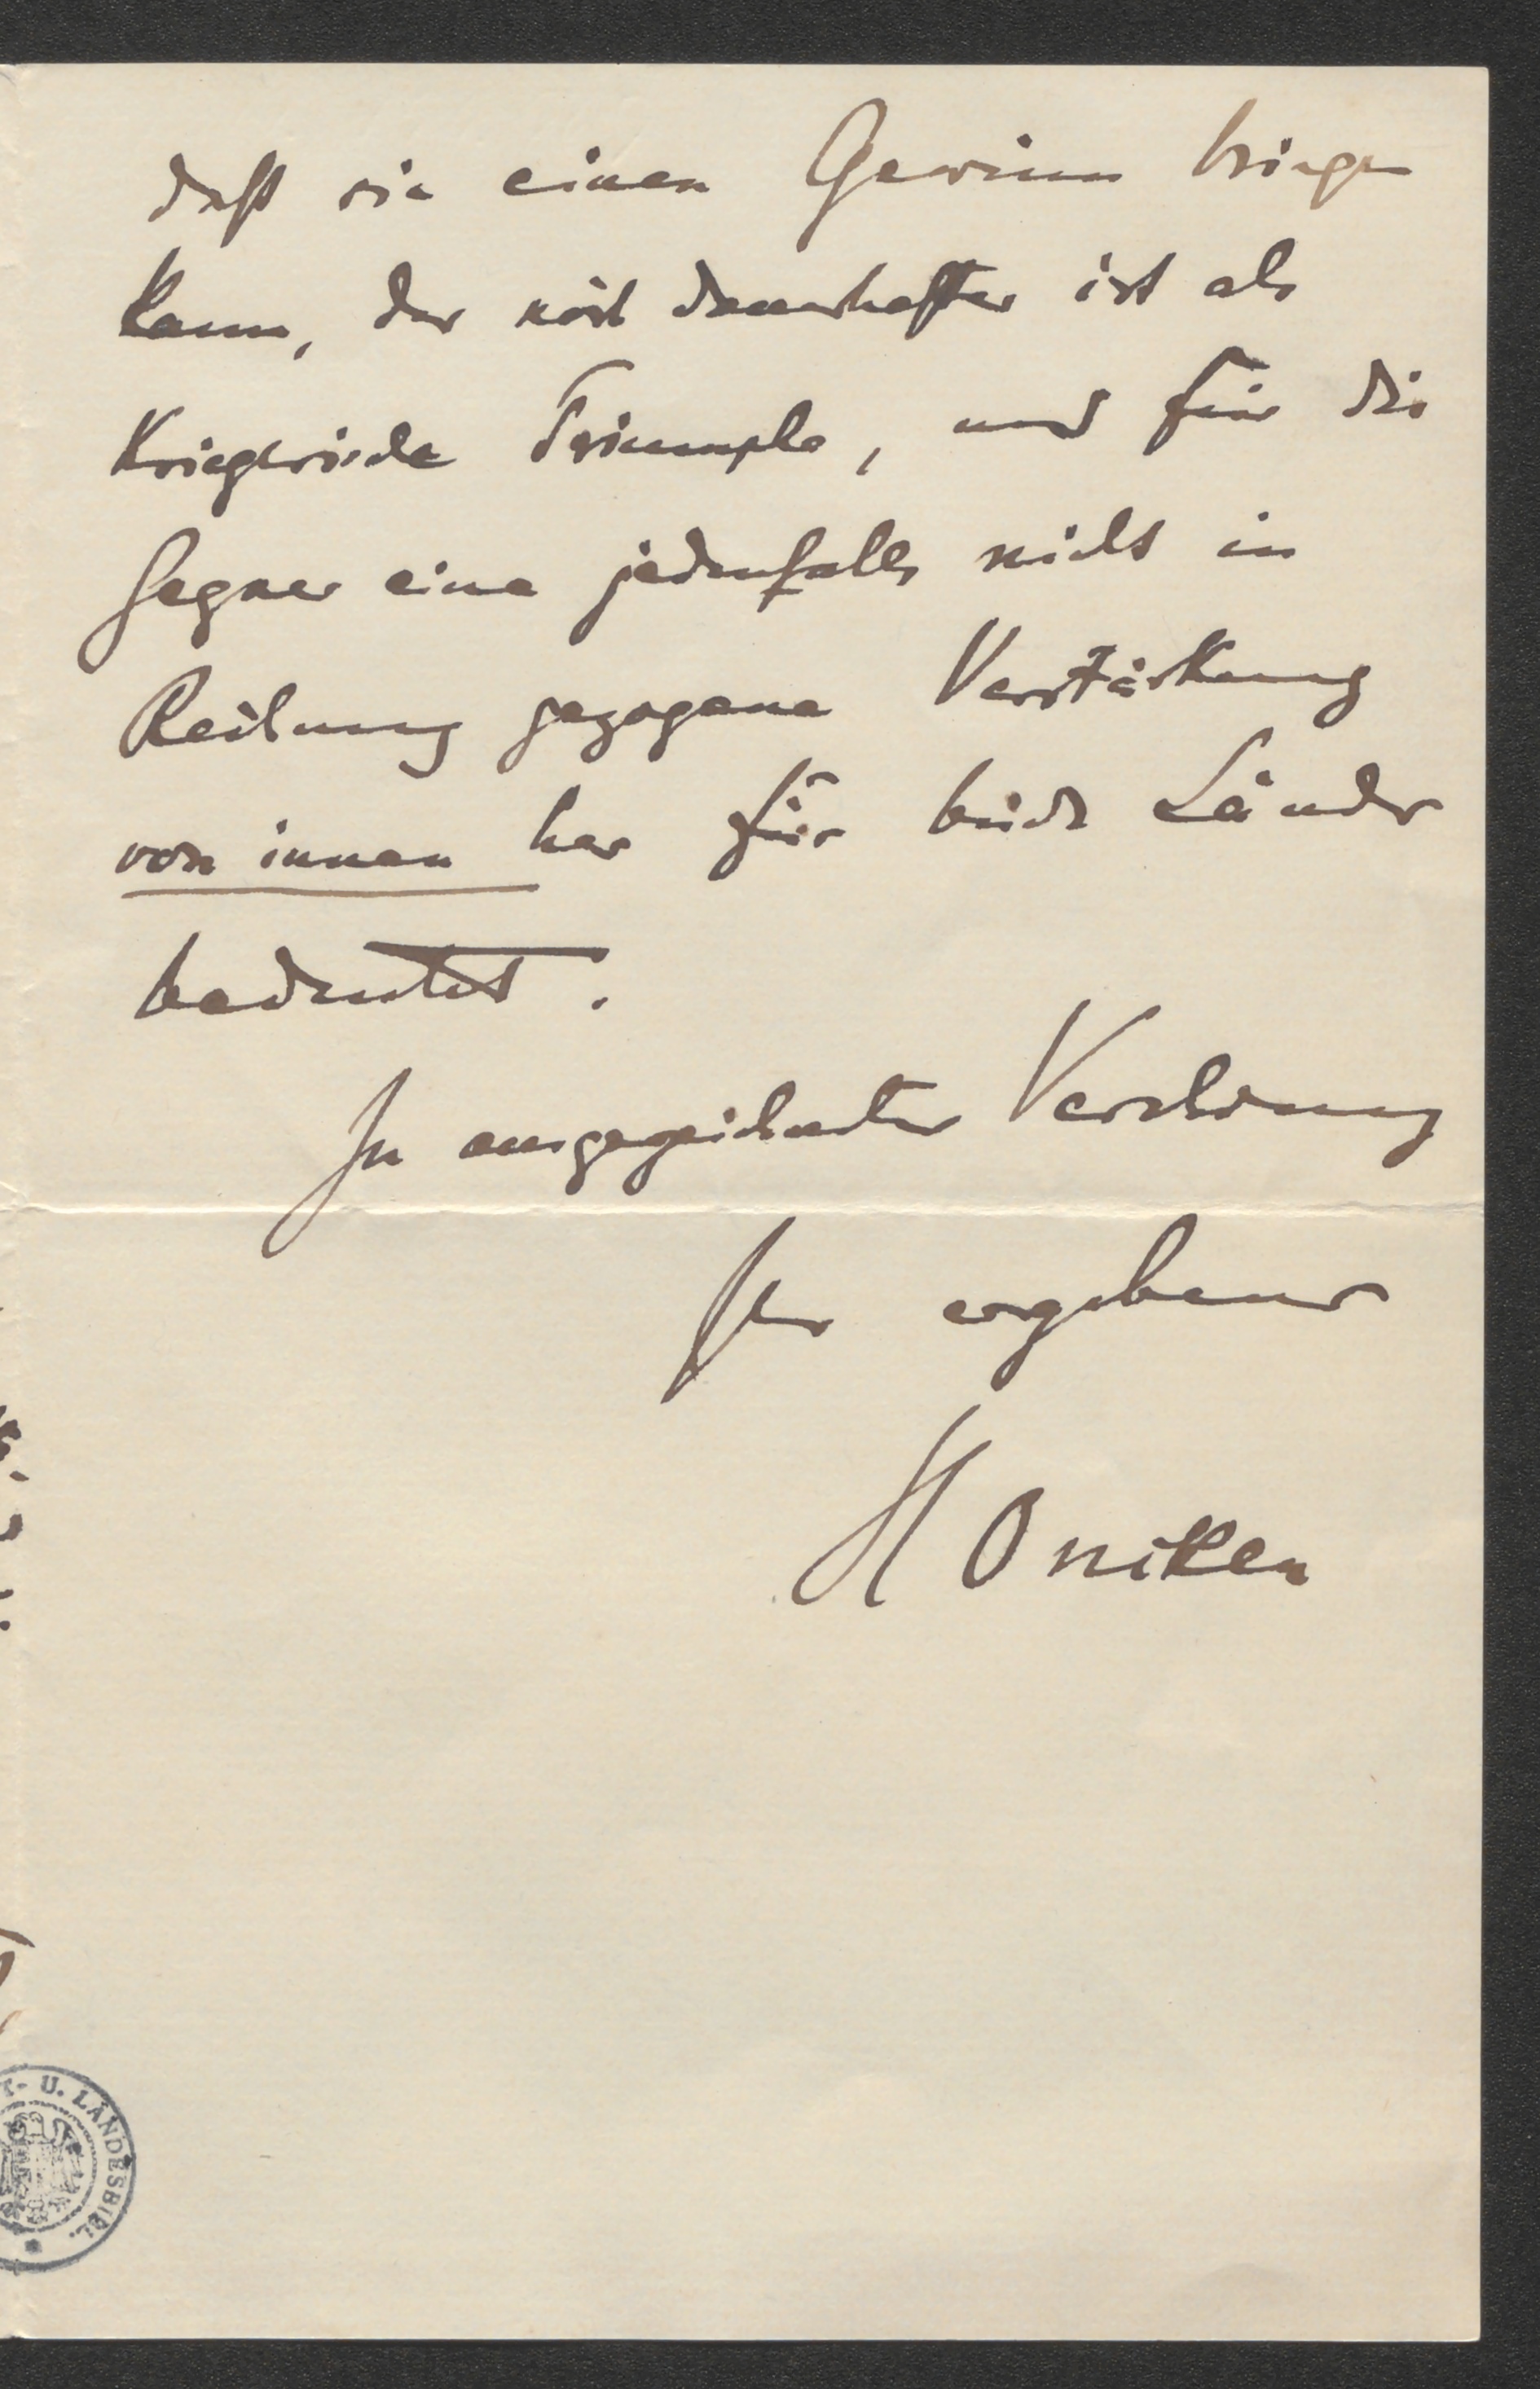 daß sie einen Gewinn bringen
kann, der noch dauerhafter ist als
kriegerische Triumphe, und für die
Gegner eine jedenfalls nicht in
Rechnung gezogene Verstärkung
von innen her für beide Länder
bedeutet.
In ausgezeichneter Verehrung
Ihr ergebener
H Oncken
T.- U. LANDESBIBL.